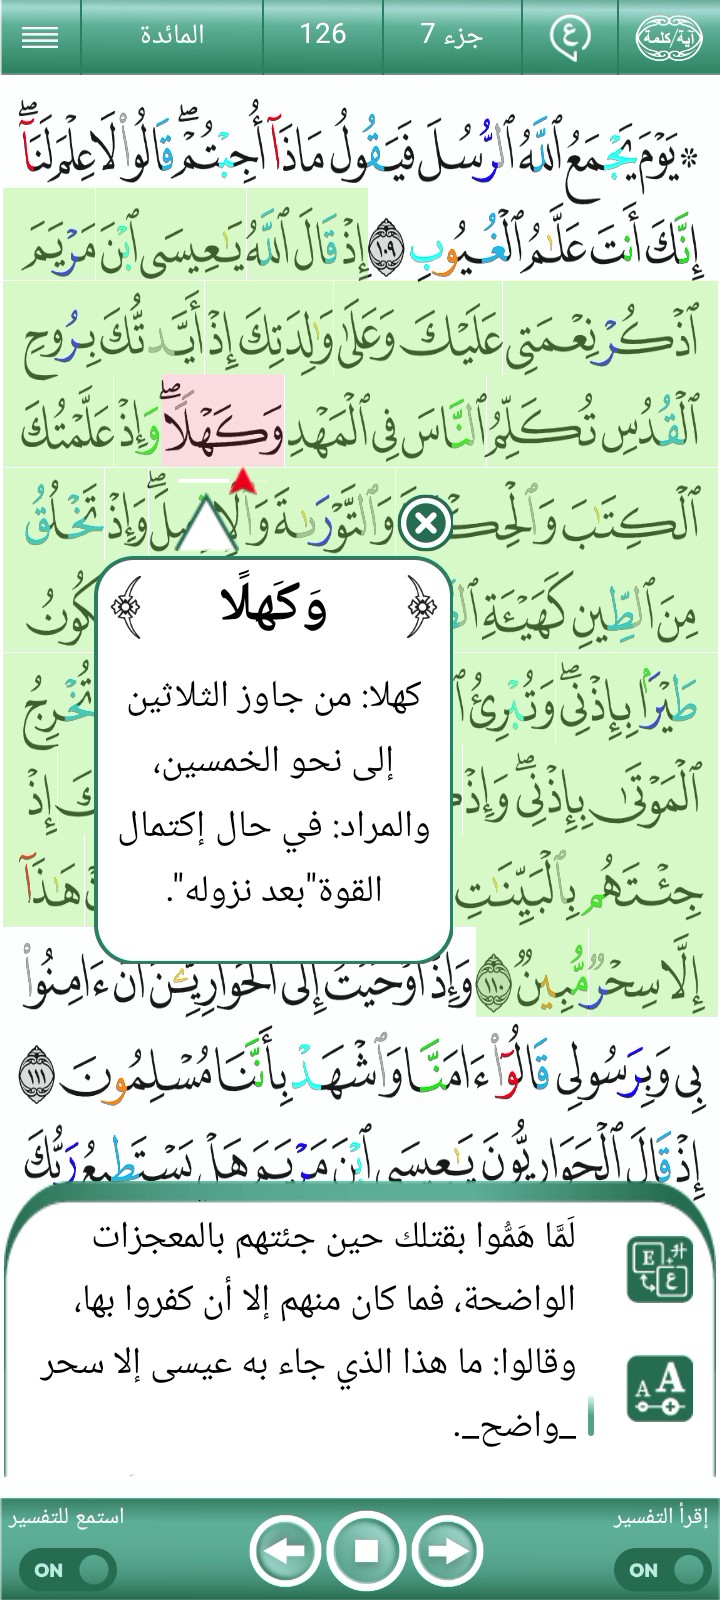 المائدة
126
جزء 7
ع
آية/كلمة
۞ يَوْمَ يَجْمَعُ ٱللَّهُ ٱلرُّسُلَ فَيَقُولُ مَاذَآ أُجِبْتُمْ ۖ قَالُوا۟ لَا عِلْمَ لَنَآ ۖ
إِنَّكَ أَنتَ عَلَّـٰمُ ٱلْغُيُوبِ ١٠٩ إِذْ قَالَ ٱللَّهُ يَـٰعِيسَى ٱبْنَ مَرْيَمَ
ٱذْكُرْ نِعْمَتِى عَلَيْكَ وَعَلَىٰ وَٰلِدَتِكَ إِذْ أَيَّدتُّكَ بِرُوحِ
ٱلْقُدُسِ تُكَلِّمُ ٱلنَّاسَ فِى ٱلْمَهْدِ وَكَهْلًا ۖ وَإِذْ عَلَّمْتُكَ
ٱلْكِتَـٰبَ وَٱلْحِكْ وَٱلتَّوْرَىٰةَ وَإِذْ تَخْلُقُ
مِنَ ٱلطِّينِ كَهَيْـَٔةِ
طَيْرًۢا بِإِذْنِى ۖ وَتُبْرِئُ تُخْرِجُ
ٱلْمَوْتَىٰ بِإِذْنِى ۖ إِذْ
جِئْتَهُم بِٱلْبَيِّنَـٰتِ هَـٰذَآ
إِلَّا سِحْرٌ مُّبِينٌ ١١٠ وَإِذْ أَوْحَيْتُ إِلَى ٱلْحَوَارِيِّـۧنَ أَنْ ءَامِنُوا۟
بِى وَبِرَسُولِى قَالُوٓا۟ ءَامَنَّا وَٱشْهَدْ بِأَنَّنَا مُسْلِمُونَ ١١١
إِذْ قَالَ ٱلْحَوَارِيُّونَ يَـٰعِيسَى ٱبْنَ مَرْيَمَ هَلْ يَسْتَطِيعُ رَبُّكَ
وَكَهلًا
كهلا: من جاوز الثلاثين
إلى نحو الخمسين،
والمراد: في حال إكتمال
القوة"بعد نزوله".
لَمَّا هَمُّوا بقتلك حين جئتهم بالمعجزات
الواضحة، فما كان منهم إلا أن كفروا بها،
وقالوا: ما هذا الذي جاء به عيسى إلا سحر
_واضح_.
إقرأ التفسير
ON
استمع للتفسير
ON